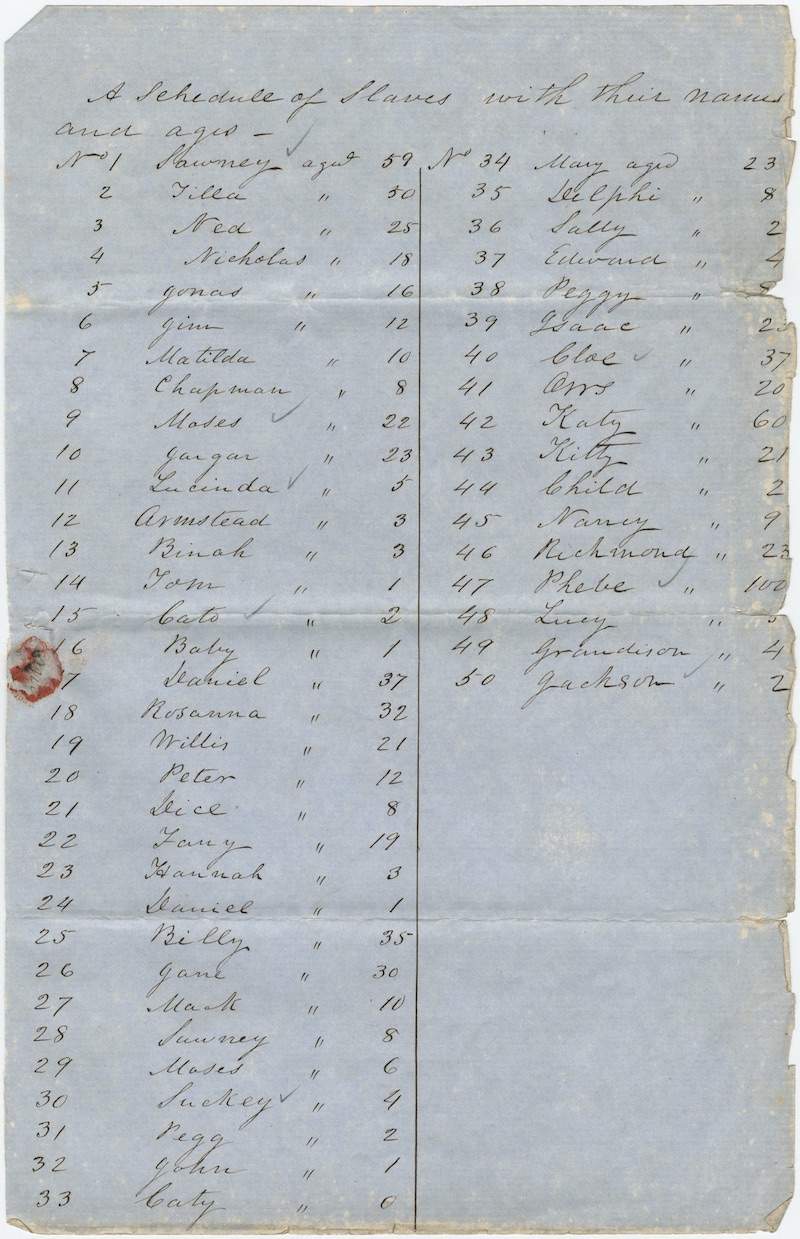 A Schedule of Slaves with their names
and ages —
No 1 Sawney aged 59
2 Tilla " 50
3 Ned " 25
4 Nicholas " 18
5 Jonas " 16
6 Jim " 12
7 Matilda " 10
8 Chapman " 8
9 Moses " 22
10 " 23
11 Lucinda " 5
12 Armstead " 3
13 Binah " 3
14 Tom " 1
15 Cato " 2
16 Baby " 1
7 Daniel " 37
18 Rosanna " 32
19 Willis " 21
20 Peter " 12
21 Dice " 8
22 Fany " 19
23 Hannah " 3
24 Daniel " 1
25 Billy " 35
26 Jane " 30
27 Mack " 10
28 Sawney " 8
29 Moses " 6
30 Suckey " 4
31 Pegg " 2
32 John " 1
33 Caty " 0
No 34 Mary aged 23
35 Delphi " 8
36 Sally " 2
37 Edward " 4
38 Peggy "
39 Isaac "
40 Cloe " 37
41 Orrs " 20
42 Katy " 60
43 Kitty " 21
44 Child " 2
45 Nancy " 9
46 Richmond " 23
47 Phebe " 100
48 Lucy "
49 Grandison " 4
50 Jackson " 2